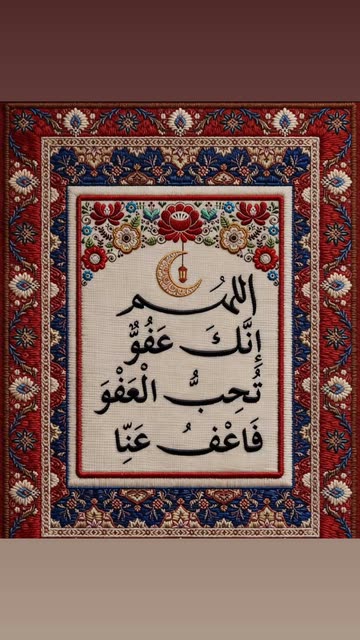 اللهم
إِنَّكَ عَفُوٌّ
تُحِبُّ الْعَفْوَ
فَاعْفُ عَنِّا